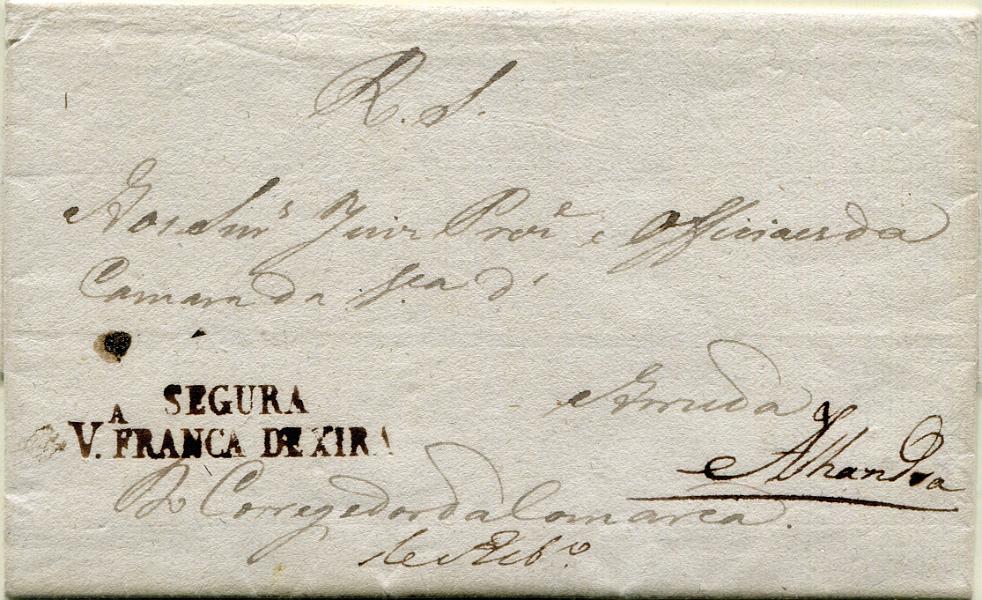 R. S.
Aos Snrs Juiz Vor.e e Officiaes da
Camara da V.a d'
Arruda
Alhandra
SEGURA
V.A FRANCA DE XIRA
Do Corregedor da Comarca
de Rib.o